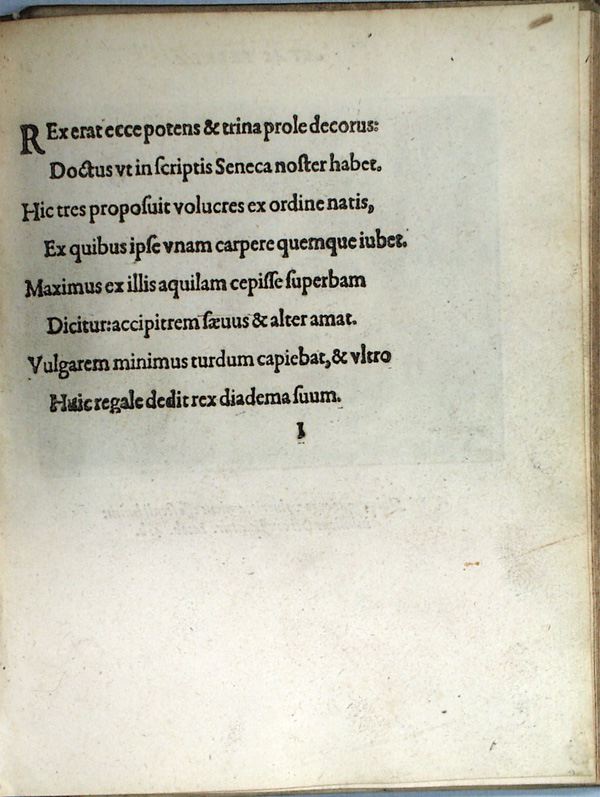 REx erat ecce potens & trina prole decorus:
Doctus vt in ſcriptis Seneca noſter habet.
Hic tres propoſuit volucres ex ordine natis,
Ex quibus ipſe vnam carpere quemque iubet.
Maximus ex illis aquilam cepiſſe ſuperbam
Dicitur: accipitrem ſæuus & alter amat.
Vulgarem minimus turdum capiebat, & vltro
Huic regale dedit rex diadema ſuum.
I